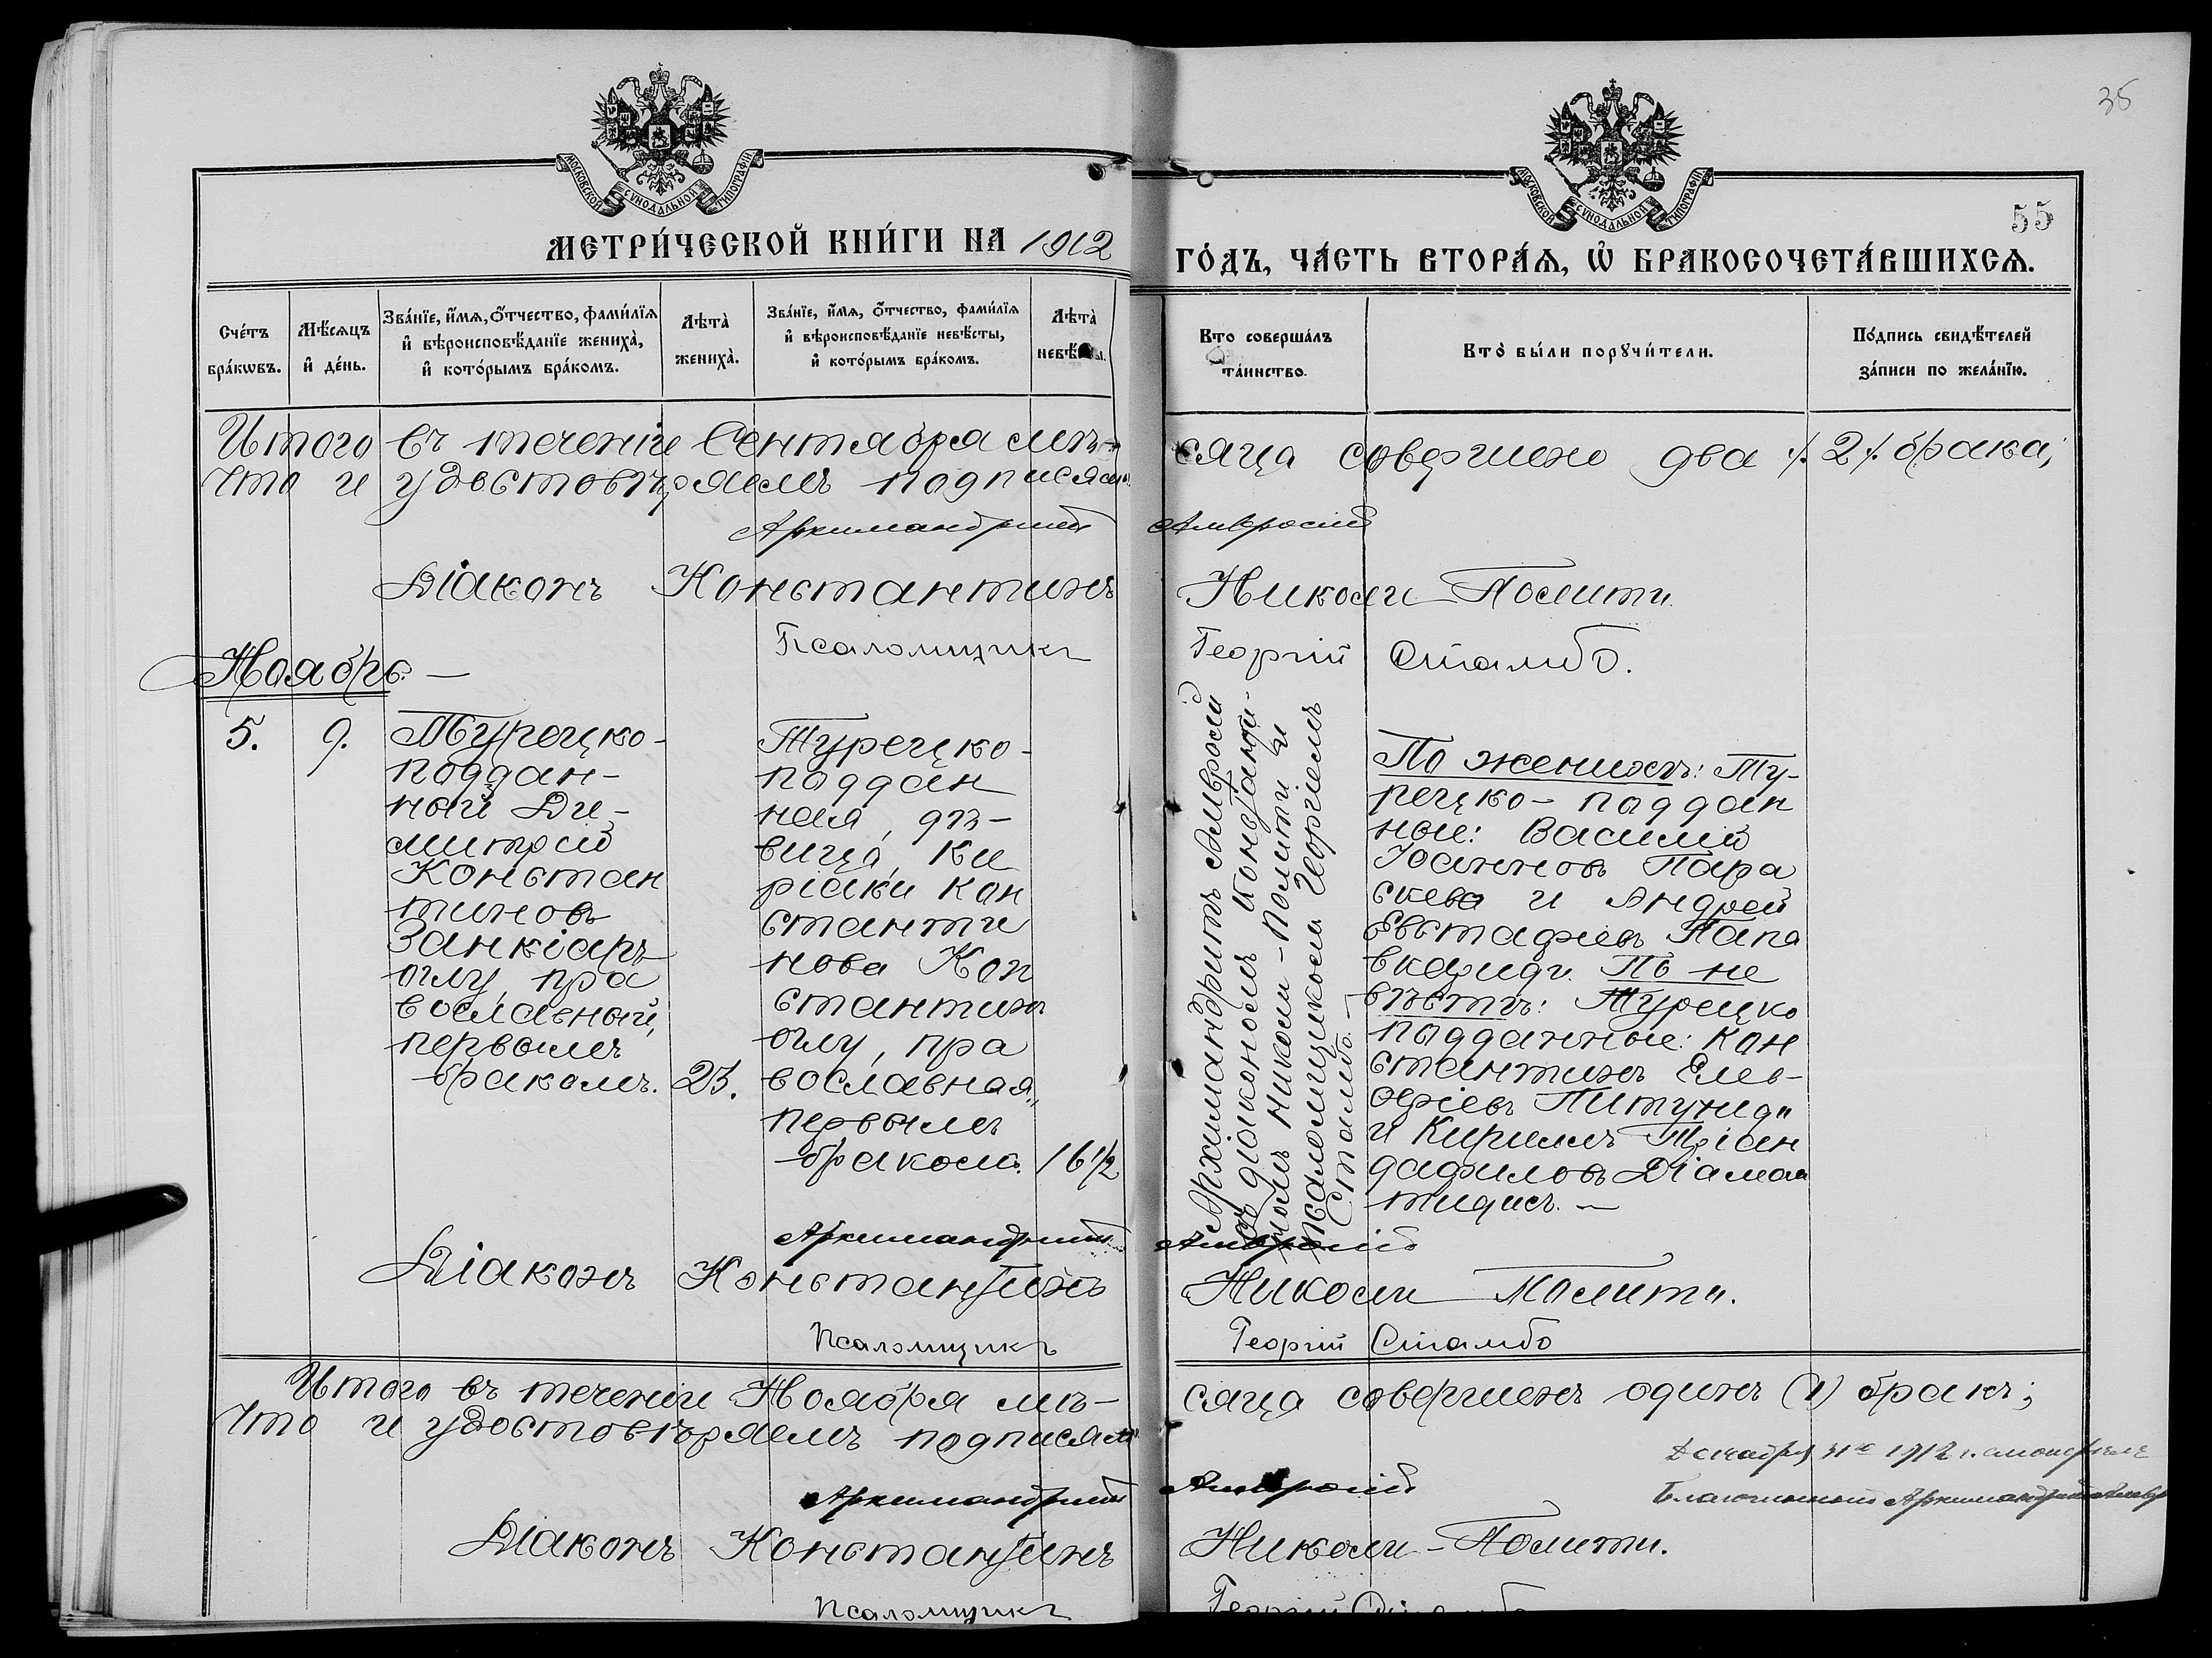 35
55
МОСКОВСКОЙ СѴНОДАЛЬНОЙ ТИПОГРАФІИ
МОСКОВСКОЙ СѴНОДАЛЬНОЙ ТИПОГРАФІИ
МЕТРИ́ЧЕСКОЙ КНИ́ГИ НА 1912
ГО́ДЪ, ЧА́СТЬ ВТОРА́Ѧ, Ѡ҆ БРАКОСОЧЕТА́ВШИХСѦ.
Сче́тъ
бра́кѡвъ.
Мѣ́сѧцъ
и҆ де́нь.
Зва́нїе, и҆́мѧ, ѻ҆́тчество, фами́лїѧ
и҆ вѣроисповѣ́данїе жениха̀,
и҆ кото́рымъ бра́комъ.
Лѣта̀
жениха̀.
Зва́нїе, и҆́мѧ, ѻ҆́тчество, фами́лїѧ
и҆ вѣроисповѣ́данїе невѣ́сты,
и҆ кото́рымъ бра́комъ.
Лѣта̀
невѣ́сты.
Кто соверша́лъ
та́инство.
Кто̀ бы́ли порꙋчи́тели.
По́дпись свидѣ́телей
за́писи по жела́нїю.
Итого въ теченіи Сентября мѣ-
сяца совершено два /2/ брака;
что и удостовѣряемъ подписями
Архимандритъ Амвросій
Діаконъ Константинъ Николи-Полити.
Псаломщикъ Георгій Стамбо.
Ноябрь. —
5.
9.
Турецко-
поддан-
ный Ди-
митрій
Констан
тиновъ
Занкіаръ
оглу, пра
вославный,
первымъ
бракомъ.
23.
Турецко-
поддан
ная, дѣ-
вица, Ки
ріаки Кон
станти
нова Кон
стантинъ
оглу, пра
вославная,
первымъ
бракомъ.
16 1/2
Архимандритъ Амвросій
съ діакономъ Константи-
номъ Николи-Полити и
псаломщикомъ Георгіемъ
Стамбо. —
По женихѣ: Ту-
рецко-поддан
ные: Василій
Іоанновъ Пара
скева и Андрей
Евстафіевъ Папа
скариди. По не
вѣстѣ: Турецко
подданные: Кон
стантинъ Елев-
феріевъ Питуниди
и Кириллъ Тріан
дафиловъ Діаман
тидисъ. —
Архимандритъ Амвросій
Діаконъ Константинъ Николи Полити.
Псаломщикъ Георгій Стамбо
Итого въ теченіи Ноября мѣ-
сяца совершенъ одинъ (1) бракъ;
что и удостовѣряемъ подписями
Декабря 31го 1912 г. смотрѣлъ
Благочинный Архимандритъ Амвр
Архимандритъ Амвросій
Діаконъ Константинъ Николи-Полити.
Псаломщикъ Георгій Стамбо